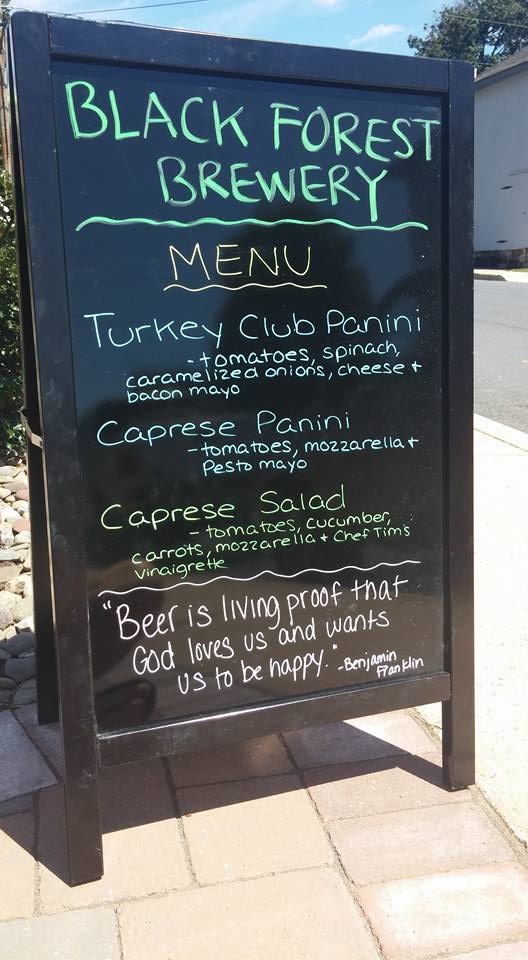 BLACK FOREST
BREWERY
MENU
Turkey Club Panini
-tomatoes, spinach,
caramelized onions, cheese +
bacon mayo
Caprese Panini
-tomatoes, mozzarella +
Pesto mayo
Caprese Salad
- tomatoes, cucumber,
carrots, mozzarella + Chef Tim's
vinaigrette
"Beer is living proof that
God loves us and wants
us to be happy." -Benjamin
Franklin